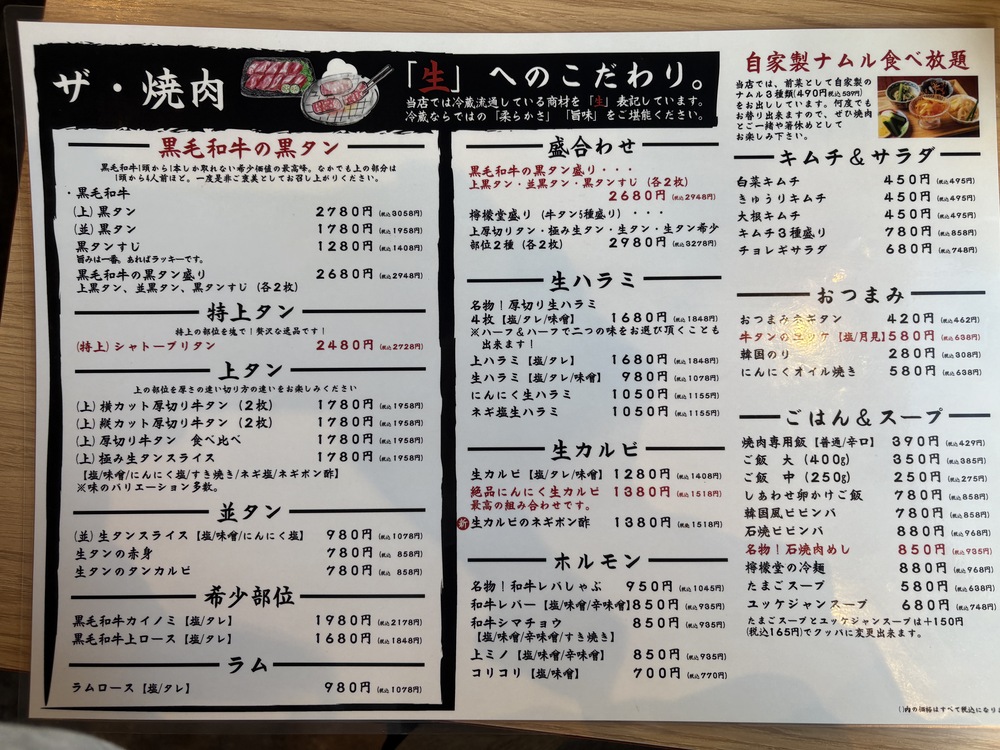 ザ・焼肉
「生」へのこだわり。
当店では冷蔵流通している商材を「生」表記しています。
冷蔵ならではの「柔らかさ」「旨味」をご堪能ください。
黒毛和牛の黒タン
黒毛和牛1頭から1本しか取れない希少価値の最高峰。なかでも上の部分は
1頭から4人前ほど。一度是非ご褒美としてお召し上がりください。
・黒毛和牛
(上)黒タン 2780円(税込3058円)
(並)黒タン 1780円(税込1958円)
黒タンすじ 1280円(税込1408円)
旨みは一番。あればラッキーです。
黒毛和牛の黒タン盛り 2680円(税込2948円)
上黒タン、並黒タン、黒タンすじ(各2枚)
特上タン
特上の部位を塊で!贅沢な逸品です!
(特上)シャトーブリタン 2480円(税込2728円)
上タン
上の部位を厚さの違い切り方の違いをお楽しみください
(上)横カット厚切り牛タン(2枚) 1780円(税込1958円)
(上)縦カット厚切り牛タン(2枚) 1780円(税込1958円)
(上)厚切り牛タン 食べ比べ 1780円(税込1958円)
(上)極み生タンスライス 1780円(税込1958円)
【塩/味噌/にんにく塩/すき焼き/ネギ塩/ネギポン酢】
※味のバリエーション多数。
並タン
(並)生タンスライス【塩/味噌/にんにく塩】 980円(税込1078円)
生タンの赤身 780円(税込 858円)
生タンのタンカルビ 780円(税込 858円)
希少部位
黒毛和牛カイノミ【塩/タレ】 1980円(税込2178円)
黒毛和牛上ロース【塩/タレ】 1680円(税込1848円)
ラム
ラムロース【塩/タレ】 980円(税込1078円)
盛合わせ
黒毛和牛の黒タン盛り・・・
上黒タン・並黒タン・黒タンすじ(各2枚)
2680円(税込2948円)
檸檬堂盛り(牛タン5種盛り)・・・
上厚切りタン・極み生タン・生タン・生タン希少
部位2種(各2枚) 2980円(税込3278円)
生ハラミ
名物!厚切り生ハラミ
4枚【塩/タレ/味噌】 1680円(税込1848円)
※ハーフ&ハーフで二つの味をお選び頂くことも
出来ます!
上ハラミ【塩/タレ】 1680円(税込1848円)
生ハラミ【塩/タレ/味噌】 980円(税込1078円)
にんにく生ハラミ 1050円(税込1155円)
ネギ塩生ハラミ 1050円(税込1155円)
生カルビ
生カルビ【塩/タレ/味噌】 1280円(税込1408円)
絶品にんにく生カルビ 1380円(税込1518円)
最高の組み合わせです。
新 生カルビのネギポン酢 1380円(税込1518円)
ホルモン
名物!和牛レバしゃぶ 950円(税込1045円)
和牛レバー【塩/味噌/辛味噌】 850円(税込935円)
和牛シマチョウ 850円(税込935円)
【塩/味噌/辛味噌/すき焼き】
上ミノ【塩/味噌/辛味噌】 850円(税込935円)
コリコリ【塩/味噌】 700円(税込770円)
自家製ナムル食べ放題
当店では、前菜として自家製の
ナムル3種類(490円税込539円)
をお出ししています。何度でも
お替り出来ますので、ぜひ焼肉
とご一緒や箸休めとして
お楽しみ下さい。
キムチ&サラダ
白菜キムチ 450円(税込495円)
きゅうりキムチ 450円(税込495円)
大根キムチ 450円(税込495円)
キムチ3種盛り 780円(税込858円)
チョレギサラダ 680円(税込748円)
おつまみ
おつまみネギタン 420円(税込462円)
牛タンのユッケ【塩/月見】 580円(税込638円)
韓国のり 280円(税込308円)
にんにくオイル焼き 580円(税込638円)
ごはん&スープ
焼肉専用飯【普通/辛口】 390円(税込429円)
ご飯 大(400g) 350円(税込385円)
ご飯 中(250g) 250円(税込275円)
しあわせ卵かけご飯 780円(税込858円)
韓国風ビビンバ 780円(税込858円)
石焼ビビンバ 880円(税込968円)
名物!石焼肉めし 850円(税込935円)
檸檬堂の冷麺 880円(税込968円)
たまごスープ 580円(税込638円)
ユッケジャンスープ 680円(税込748円)
たまごスープとユッケジャンスープは+150円
(税込165円)でクッパに変更出来ます。
()内の価格はすべて税込になりま